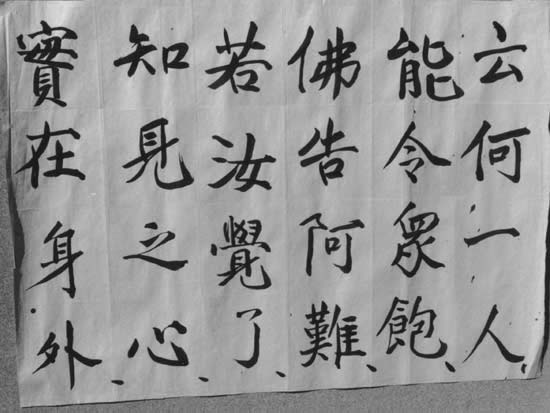 云何一人、
能令衆飽、
佛告阿難、
若汝覺了、
知見之心、
實在身外